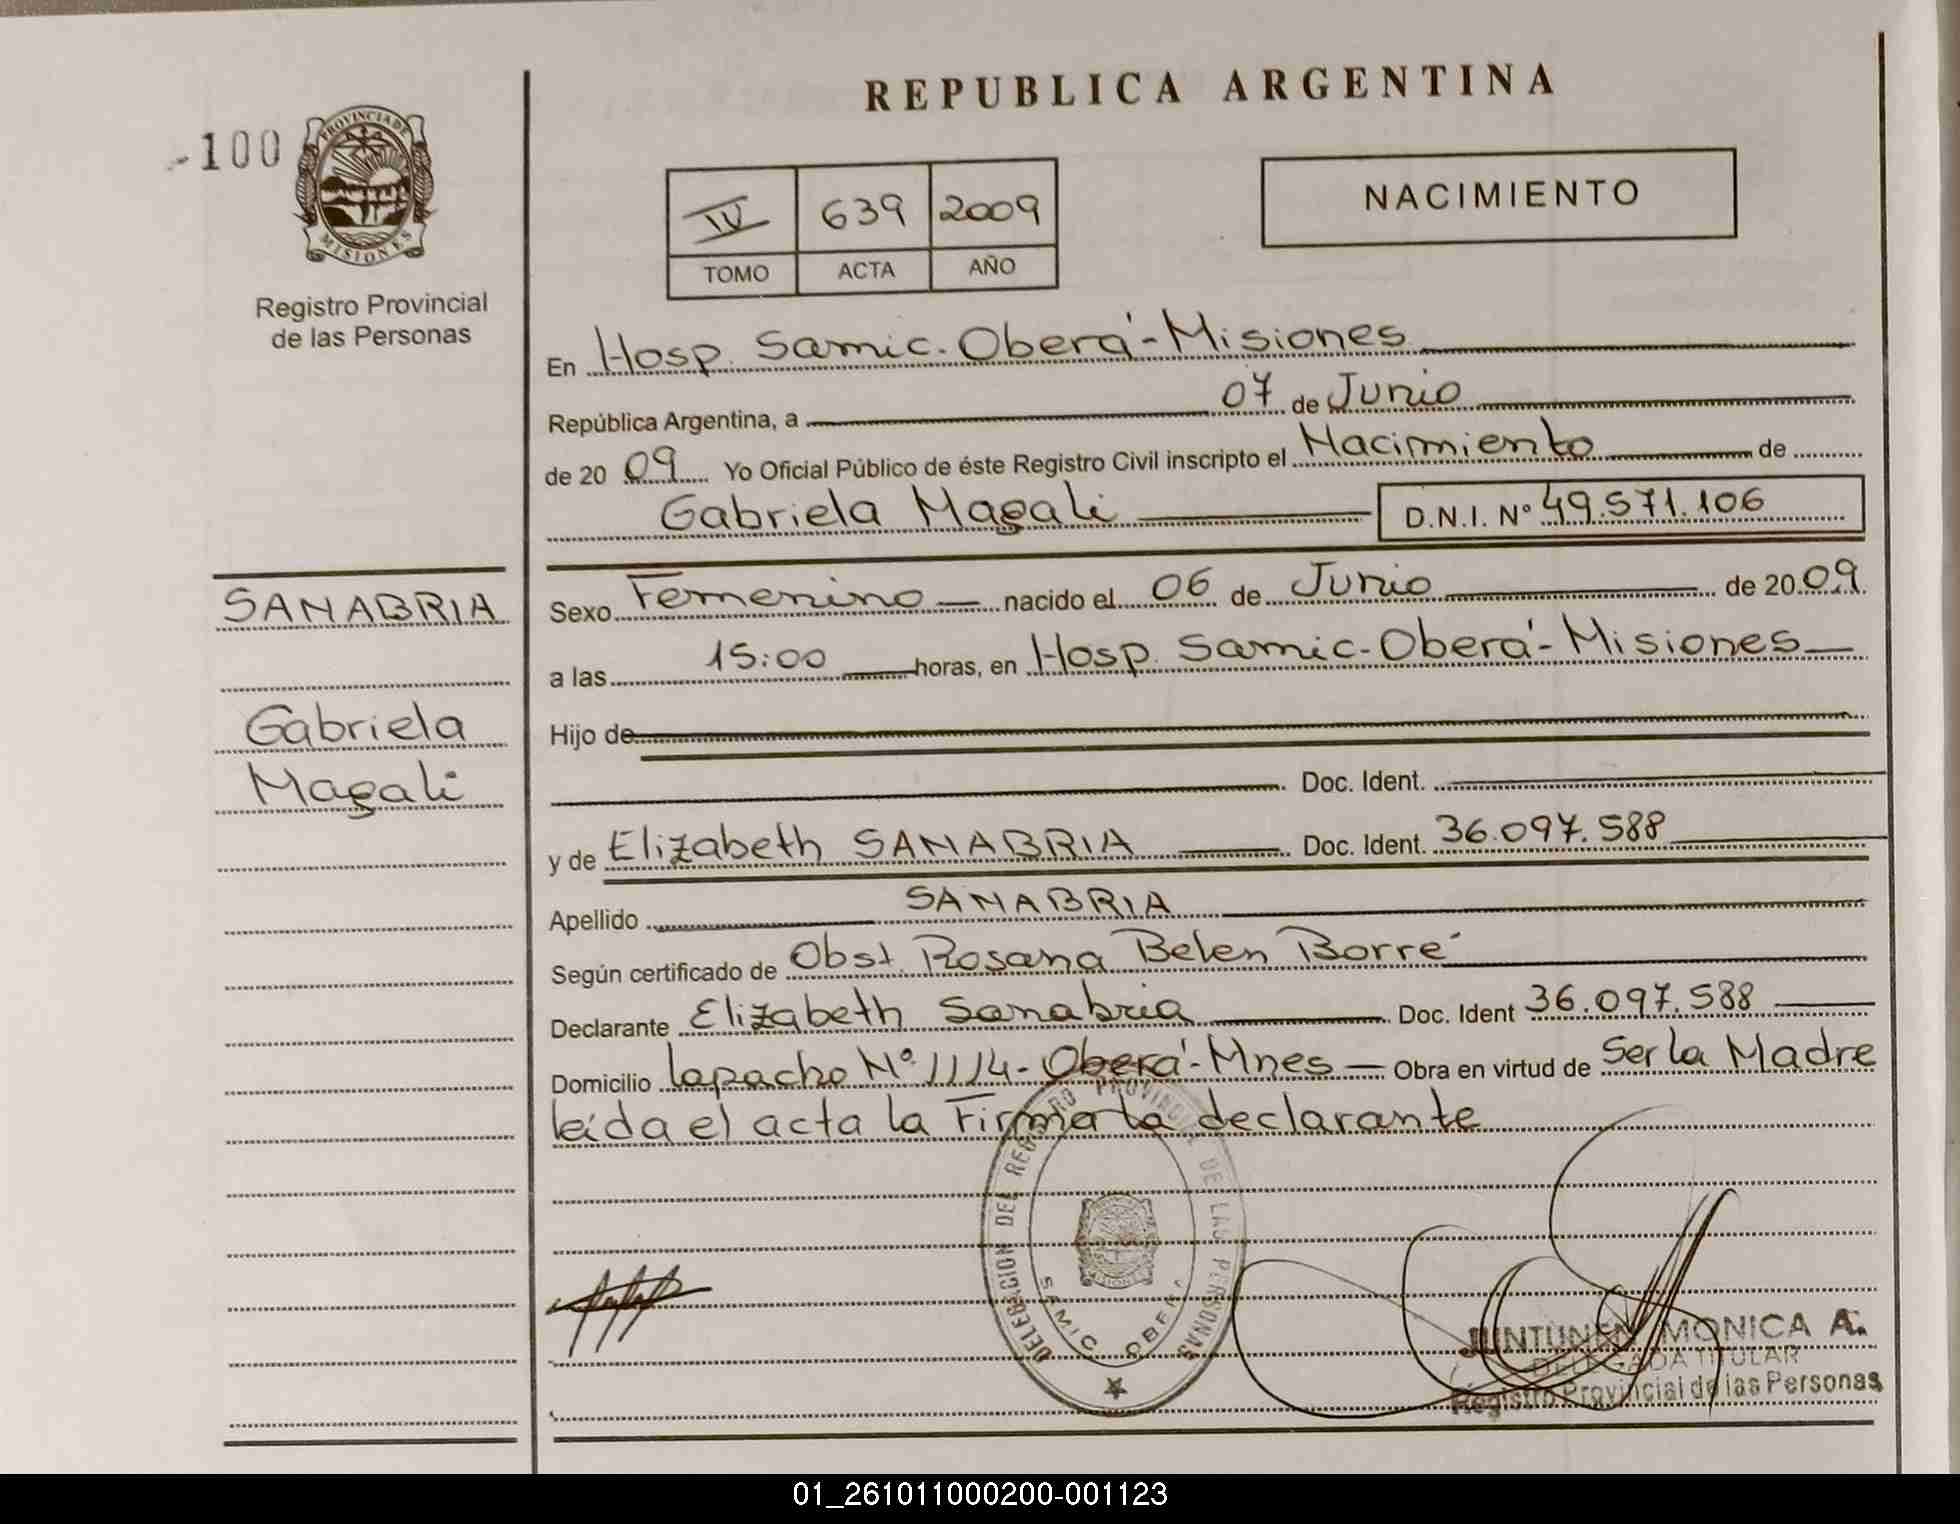 REPUBLICA ARGENTINA
-100
PROVINCIA DE
MISIONES
Registro Provincial
de las Personas
IV 639 2009
TOMO ACTA AÑO
NACIMIENTO
En Hosp. Samic. Oberá - Misiones
República Argentina, a 07 de Junio
de 20 09 Yo Oficial Público de éste Registro Civil inscripto el Nacimiento de
Gabriela Magali D.N.I. Nº 49.571.106
SANABRIA
Gabriela
Magali
Sexo Femenino nacido el 06 de Junio de 20 09
a las 15:00 horas, en Hosp. Samic - Oberá - Misiones
Hijo de
Doc. Ident.
y de Elizabeth SANABRIA Doc. Ident. 36.097.588
Apellido SANABRIA
Según certificado de Obst. Rosana Belen Borré
Declarante Elizabeth Sanabria Doc. Ident 36.097.588
Domicilio lapacho Nº 1114 - Oberá - Mnes Obra en virtud de Ser la Madre
leida el acta la Firma la declarante
DELEGACION DEL REGISTRO PROVINCIAL DE LAS PERSONAS
SAMIC OBERA
JUNTUNEN MONICA A.
DELEGADA TITULAR
Registro Provincial de las Personas
01_261011000200-001123